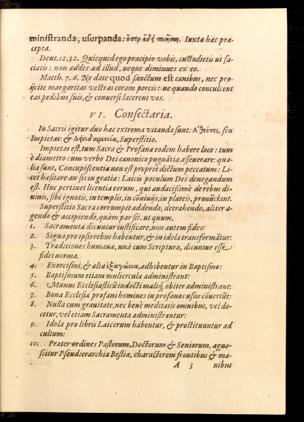 ministranda, usurpanda: Iuxta hæc præ-
cepta.
Deut. 12. 32. Quicquid ego præcipio vobis, custodietis ut fa-
ciatis: non addes ad illud, neque diminues ex eo.
Matth. 7. 6. Ne date quod sanctum est canibus, nec pro-
jicite margaritas vestras coram porcis: ne quando conculcent
eas pedibus suis, & conversi lacerent vos.
VI. Consectaria.
In Sacris igitur duo hæc extrema vitanda sunt: seu
Impietas: & Superstitio.
Impietas est, tum Sacra & Profana eodem habere loco: tum
è diametro cum verbo Dei canonico pugnātia asseverare: qua-
lia sunt, Concupiscentia non est propriè dictum peccatum: Li-
cet hæsitare an sis in gratia: Laicis poculum est denegandum
est. Huc pertinet licentia eorum, qui audacissimè de rebus di-
vinis, sibi ignotis, in templis, in cœnaculis, in plateis, pronūciant.
Superstitio Sacra corrumpit addendo, detrahendo, aliter a-
gendo & accipiendo, quàm par sit. ut quum,
1. Sacramenta dicuntur justificare, non autem fides:
2. Signa pro ipsis rebus habentur, & in idola transformātur:
3. Traditiones humanæ, unà cum Scriptura, dicuntur esse
fidei norma.
4. Exorcismi, & alia adhibentur in Baptismo:
5. Baptismum etiam mulierculæ administrant:
6. Munus Ecclesiasticū indocti maliq́; obiter administrant:
7. Bona Ecclesiæ profani homines in profanos usus cōvertūt:
8. Nulla cum gravitate, nec benè meditati omnibus, vel do-
cetur, vel etiam Sacramenta administrantur:
9. Idola pro libris Laicorum habentur, & prostituuntur ad
cultum:
10. Præter ordines Pastorum, Doctorum & Seniorum, agno-
scitur Pseudierarchia Bestiæ, characterem frontibus & ma-
A 3 nibus